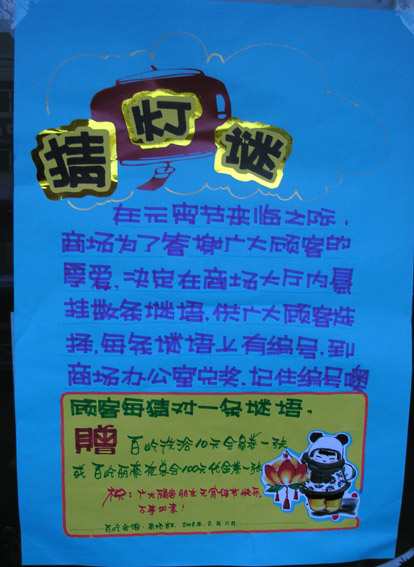 猜灯谜
在元宵节来临之际,
商场为了答谢广大顾客的
厚爱,决定在商场大厅内悬
挂数条谜语,供广大顾客选
择,每条谜语上有编号,到
商场办公室兑奖,记住编号噢
顾客每猜对一条谜语,
赠 百岭洗浴10元会员券一张
或 百岭丽豪夜总会100元代金券一张
祝:广大顾客朋友元宵佳节快乐,
万事如意!
2008年2月